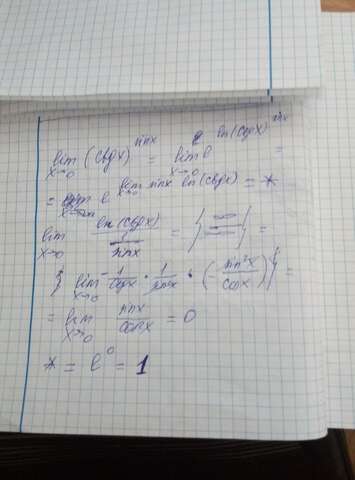 lim x→0 (ctgx)^sinx = lim x→0 e^ln(ctgx)^sinx =
= e^lim x→0 sinx ln(ctgx) = *
lim x→0 ln(ctgx) / (1/sinx) = {∞/∞} =
} lim x→0 - 1/ctgx · 1/sin²x · (- sin²x/cosx) } =
= lim x→0 sinx/cosx = 0
* = e^0 = 1